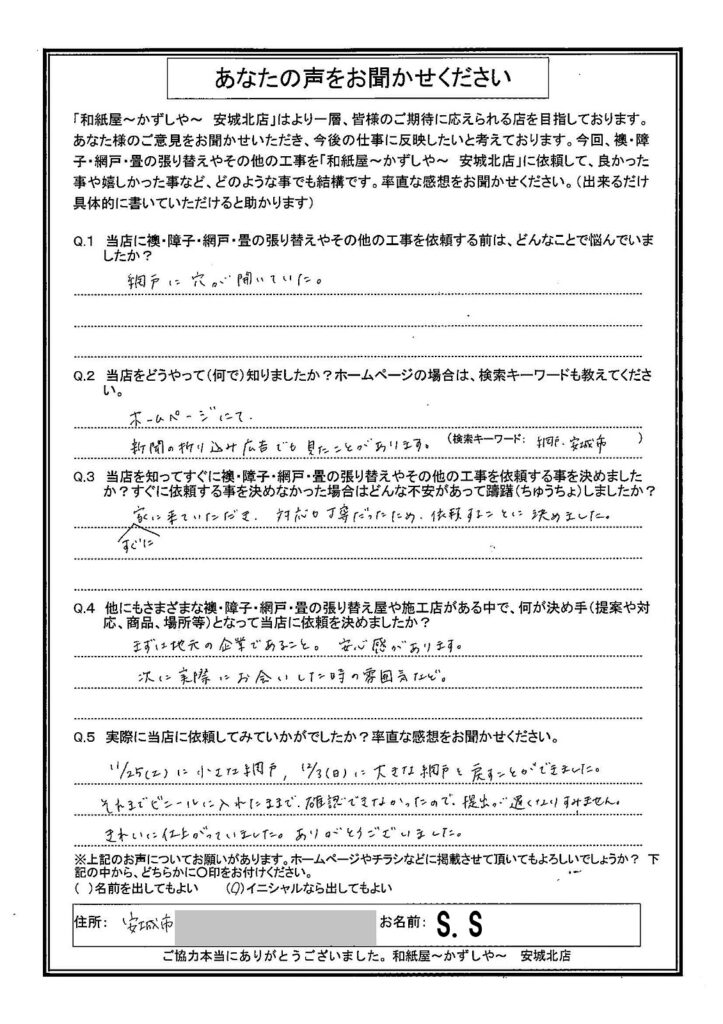 あなたの声をお聞かせください
「和紙屋～かずしや～　安城北店」はより一層、皆様のご期待に応えられる店を目指しております。
あなた様のご意見をお聞かせいただき、今後の仕事に反映したいと考えております。今回、襖・障
子・網戸・畳の張り替えやその他の工事を「和紙屋～かずしや～　安城北店」に依頼して、良かった
事や嬉しかった事など、どのような事でも結構です。率直な感想をお聞かせください。（出来るだけ
具体的に書いていただけると助かります）
Q.1　当店に襖・障子・網戸・畳の張り替えやその他の工事を依頼する前は、どんなことで悩んでいま
したか？
網戸に穴が開いていた。
Q.2　当店をどうやって（何で）知りましたか？ホームページの場合は、検索キーワードも教えてくださ
い。
ホームページにて．
新聞の折り込み広告でも見たことがあります。（検索キーワード：　網戸．安城市　）
Q.3　当店を知ってすぐに襖・障子・網戸・畳の張り替えやその他の工事を依頼する事を決めました
か？すぐに依頼する事を決めなかった場合はどんな不安があって躊躇（ちゅうちょ）しましたか？
家に来ていただき、対応も丁寧だったため、依頼することに決めました。
すぐに
Q.4　他にもさまざまな襖・障子・網戸・畳の張り替え屋や施工店がある中で、何が決め手（提案や対
応、商品、場所等）となって当店に依頼を決めましたか？
まずは地元の企業であること。　安心感があります。
次に実際にお会いした時の雰囲気など。
Q.5　実際に当店に依頼してみていかがでしたか？率直な感想をお聞かせください。
11/25(土)に小さな網戸，12/3(日)に大きな網戸を戻すことができました。
それまでビニールに入れたままで、確認できなかったので、提出が遅くなりすみません。
きれいに仕上がっていました。ありがとうございました。
※上記のお声についてお願いがあります。ホームページやチラシなどに掲載させて頂いてもよろしいでしょうか？　下
記の中から、どちらかに〇印をお付けください。
（　）名前を出してもよい　　（〇）イニシャルなら出してもよい
住所：　安城市　お名前：　S.S
ご協力本当にありがとうございました。和紙屋～かずしや～　安城北店